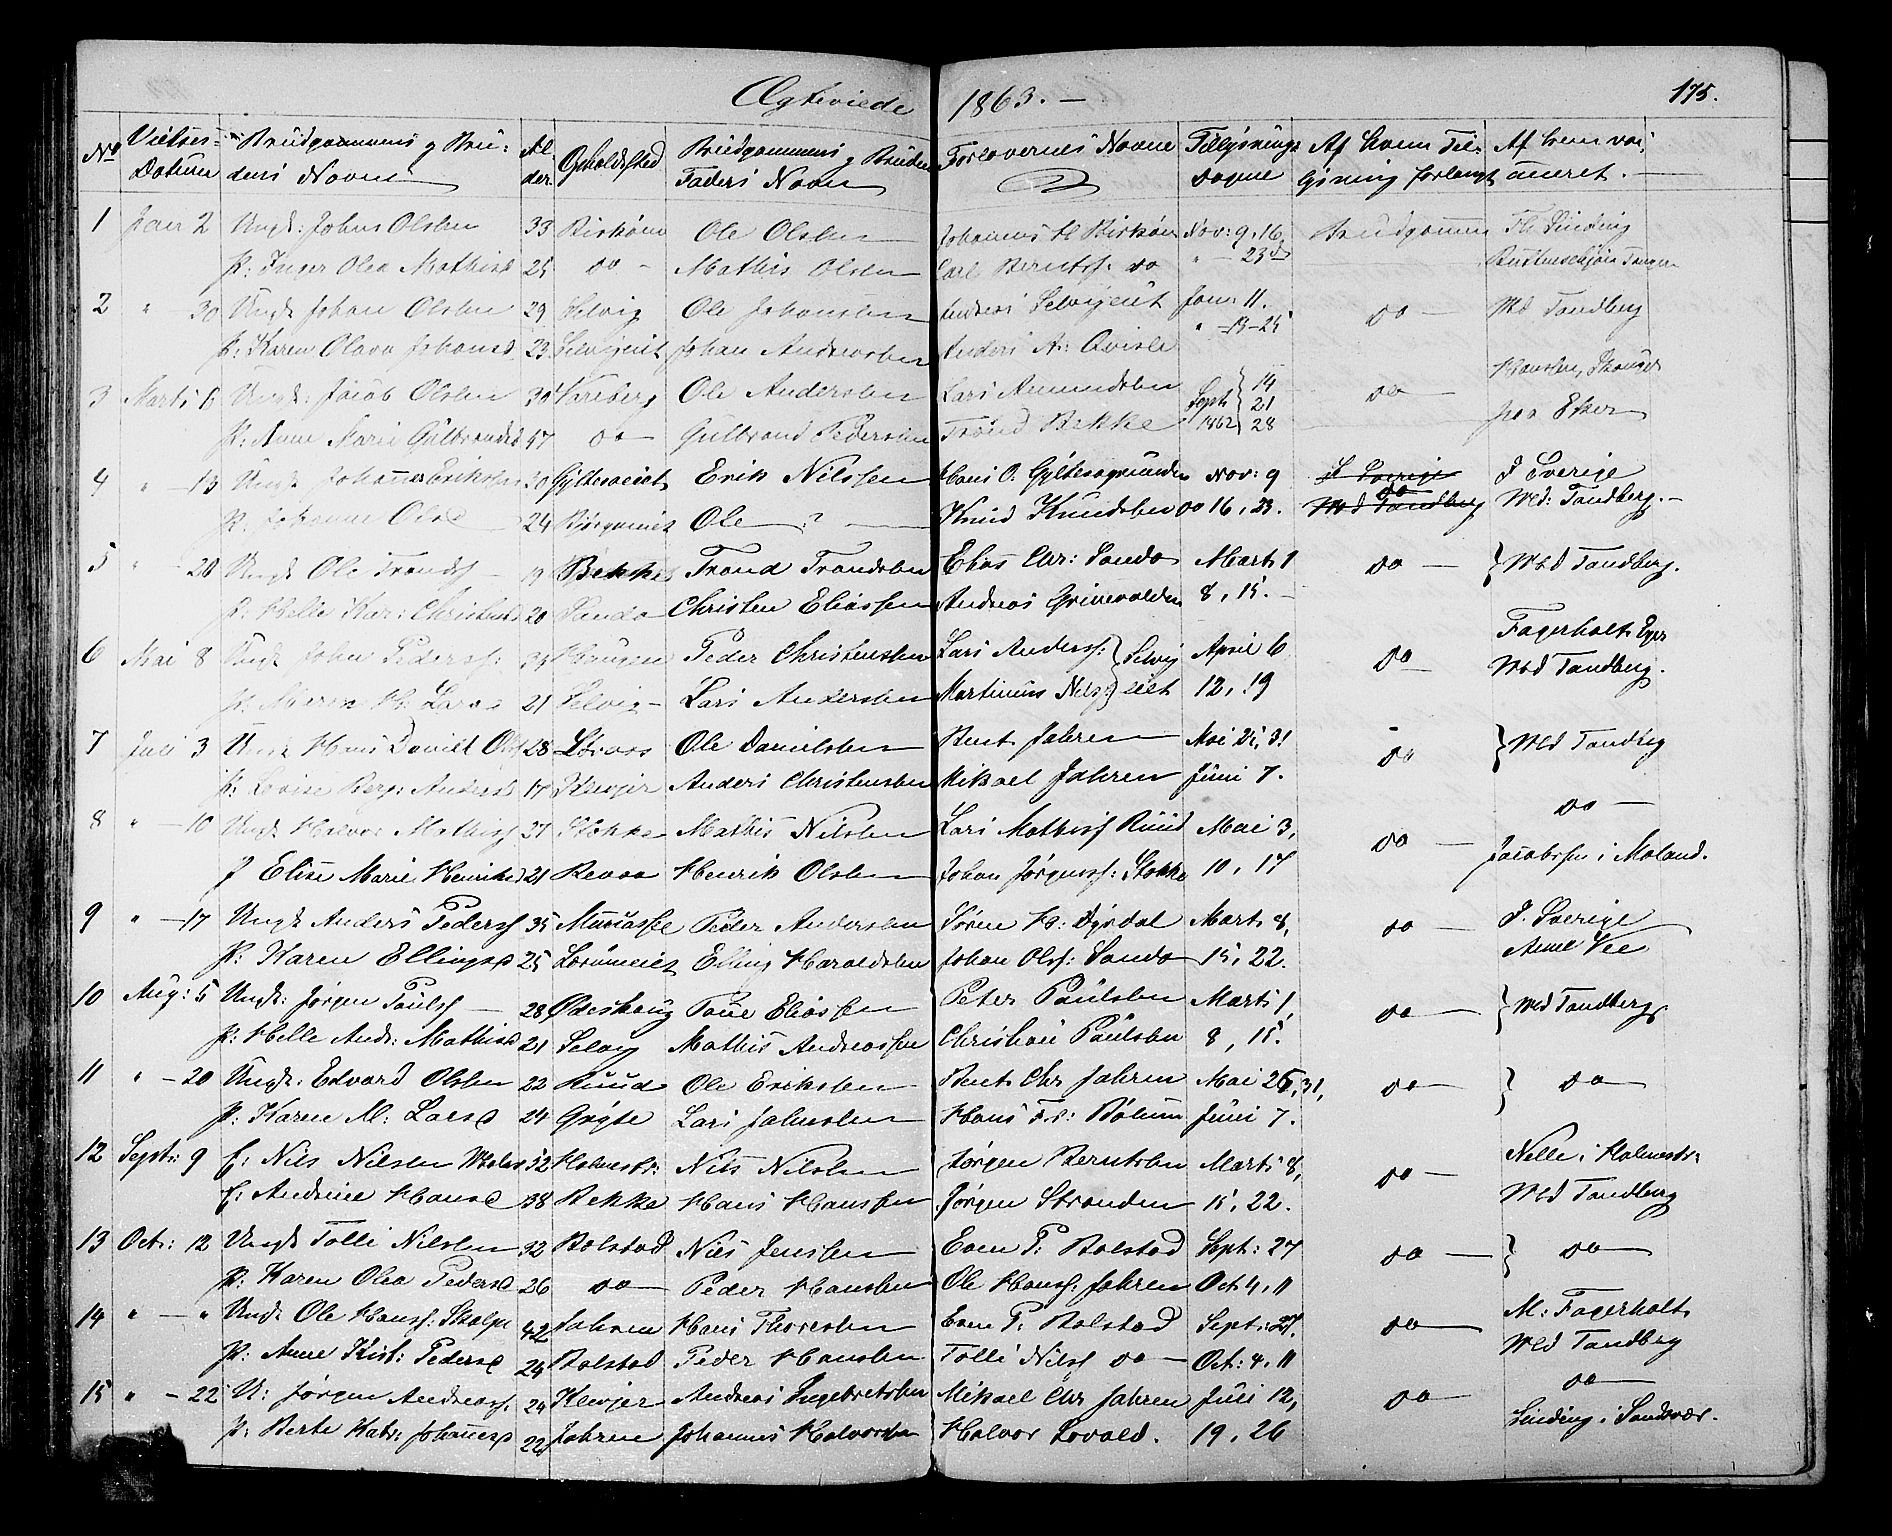 Ægteviede 1863. — 175.
No Vielses-Datum Brudgommens og Brudens Navne Alder Opholdssted Brudgommens og Brudens Faders Navn Forlovernes Navne Tillysnings Dagene Af hvem Tillysning forlangt Af hvem vac: atteret.
1 Janr 2 Ungk: Johns Olsen 33 Ole Olsen Johannes Nov: 9, 16, Brudgommen Th Sinding
P: Inger Olea Mathisd 25 do — Mathis Olsen Carl Berntsf: do " — 23d
2 " — 30 Ungk Johan Olsen 29 Selvig Ole Johansen Andreas Selvigeiet Janr 11. do — Wed Tandberg
P: Karen Olava Johansd 23 Selvigeiet Johan Andreasen Anders A: " — 18 – 25
3 Marts 6 Ungk: Jacob Olsen 30 Ole Andersen Lars Amundsen Sept 1862 } 14 21 28 do —
P: Anne Marie Gulbrandsd 47 do — Gulbrand Pedersen Trond Bekke paa Eker
4 " — 13 Ungk Johannes Eriksen 30 Erik Nilssen Hans O. Nov: 9 I Sverige do I Sverige
P. Johanne Olsd — 24 Ole — ? — Knud Knudsen do 16, 23. Wed Tandberg Wed: Tandberg. —
5 " — 20 Ungk Ole Trondsf — 19 Bekke Trond Trondsen Elias Chr: Sando Marts 1 do — } Wed Tandberg.
P: Helle Kar: Christensd 20 Sando Christen Eliassen Andreas 8, 15. —
6 Mai 8 Ungk John Pedersf: Haugen Peder Christensen Lars Andersf: } Selvig April 6 do — Fagerholt Eger
P: Maren H: Larsd 21 Selvig — Lars Andersen Martinius Nils: } eiet 12, 19 Wed Tandberg.
7 Juli 3 Ungk Hans Davidt Olsf 28 Ole Danielsen Bent Jahren Mai 25, 31 do } Wed Tandberg
P: Lovise Berg: Andersd 17 Klevjer Anders Christensen Mikael Jahren Juni 7.
8 " — 10 Ungk Halvor Mathisf 37 Stokke Mathis Nilsen Lars Mathisf Ruud Mai 3, do — do —
P Elise Marie Henriksd 21 Revaa Henrik Olsen Johan Jørgensf: Stokke 10, 17 Jacobsen i Moland.
9 " — 17 Ungk Anders Pedersf 35 Peder Andersen Søren H: Dyrdal Marts 8, do — I. Sverige
P: Karen Ellingsd 25 Elling Haraldsen Johan Olsf: Sando 15, 22.
10 Aug: 5 Ungk: Jørgen Paulsf — 28 Ødeshaug Paul Eliassen Peter Paulsen Marts 1, do — } Wed Tandberg
P: Helle Andr: Mathisd 21 Selvig Mathis Andreassen Christian Paulsen 8, 15.
11 " — 20 Ungk: Edvard Olsen 22 Ruud Ole Eriksen Bent Chr Jahren Mai 25, 31, do — } do —
P: Karen M: Larsd 24 Grøte Lars Johnsen Hans Fr: Bølum Juni 7.
12 Septr: 9 E: Nils Nilsen 52 Holmestr: Nils Nilsen Jørgen Berntsen Marts 8, do — Nelle i Holmestr:
E: Andrine Hansd 38 Bekke Hans Hanssen Jørgen Stranden 15, 22. Wed Tandberg
13 Oct: 12 Ungk Tolli Nilsen 32 Bolstad Nils Jenssen Even P: Bolstad Sept: 27 do — } do —
P: Karen Olea Pedersd 26 do — Peder Hansen Ole Hansf: Jahren Oct 4, 11
14 " — " Ungk Ole Hansf: 42 Jahren Hans Thoresen Even P: Bolstad Sept: 27. do — M: Fagerholt
P: Anne Kirst: Pedersd 24 Bolstad Peder Hansen Tolli Nilsf do — Oct: 4, 11 Wed Tandberg
15 " — 22 U: Jørgen Andreasf. 24 Klevjer Andreas Ingebretsen Mikael Chr Jahren Juli 12, do — do —
P: Berte Katr: Johannesd 22 Jahren Johannes Halvorsen Halvor Lovald. 19, 26 Sinding i Sandsvær.